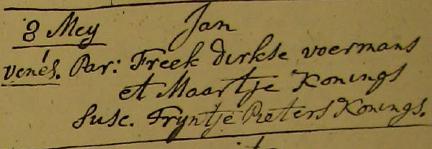 8 Mey Jan
venes. Par: Freek dirkse voermans
et Maartje Konings
Susc. Tryntje Pieters Konings.